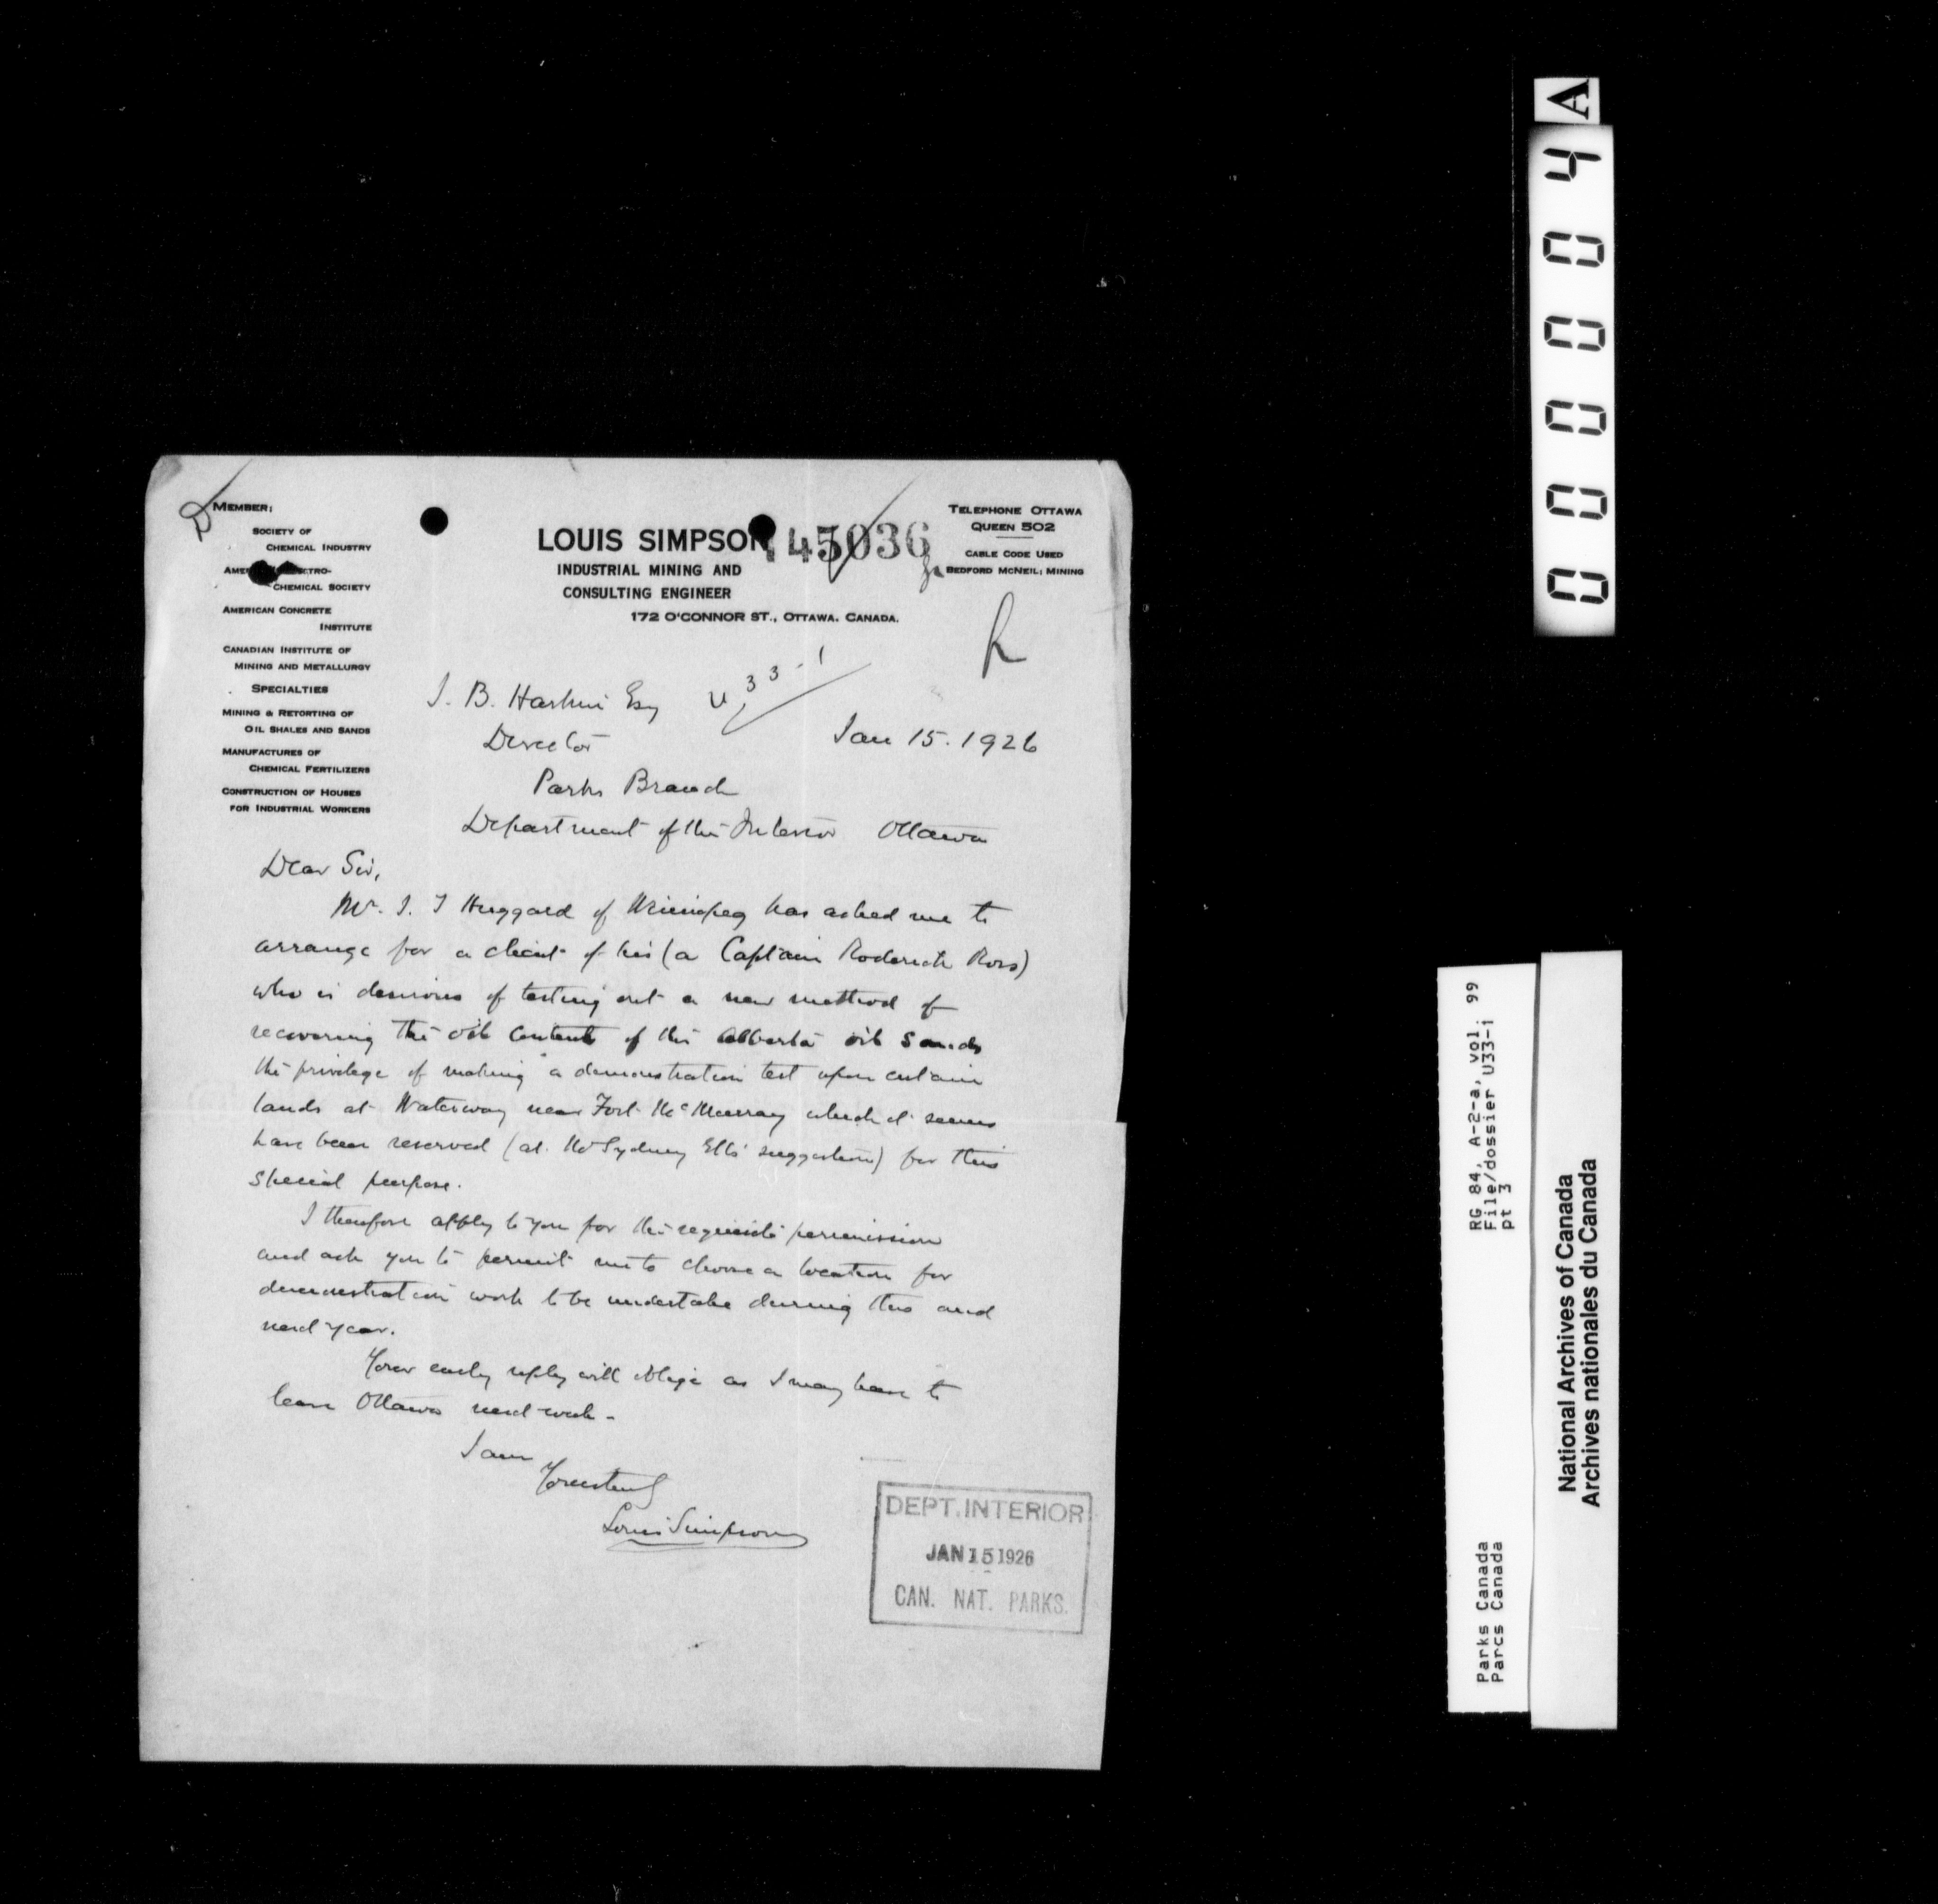 MEMBER:
SOCIETY OF
CHEMICAL INDUSTRY
CHEMICAL SOCIETY
AMERICAN CONCRETE
INSTITUTE
CANADIAN INSTITUTE OF
MINING AND METALLURGY
SPECIALTIES
MINING & RETORTING OF
OIL SHALES AND SANDS
MANUFACTURES OF
CHEMICAL FERTILIZERS
CONSTRUCTION OF HOUSES
FOR INDUSTRIAL WORKERS
LOUIS SIMPSON
45036
INDUSTRIAL MINING AND
CONSULTING ENGINEER
172 O'CONNOR ST., OTTAWA. CANADA.
TELEPHONE OTTAWA
QUEEN 502
CABLE CODE USED
BEDFORD MCNEIL: MINING
U 33-1
J. B. Harkin Esq
Director
Jan 15. 1926
Parks Branch
Department of the Interior Ottawa
Dear Sir,
Mr. J. T Huggard of Winnipeg has asked me to
arrange for a client of his (a Captain Roderick Ross)
who is desirous of testing out a new method of
recovering the oil contents of the Alberta oil sands
the privilege of making a demonstration test upon certain
lands at Waterway near Fort McMurray which it seems
have been reserved (at Mr Sydney Ells' suggestion) for this
special purpose.
I therefore apply to you for the requisite permission
and ask you to permit me to choose a location for
demonstration work to be undertake during this and
next year.
Your early reply will oblige as I may have to
leave Ottawa next week.
I am
Yours truly
Louis Simpson
DEPT. INTERIOR
JAN 15 1926
CAN. NAT. PARKS.
000004A
Parks Canada
Parcs Canada
RG 84, A-2-a, vol. 99
File/dossier U33-1
pt 3
National Archives of Canada
Archives nationales du Canada